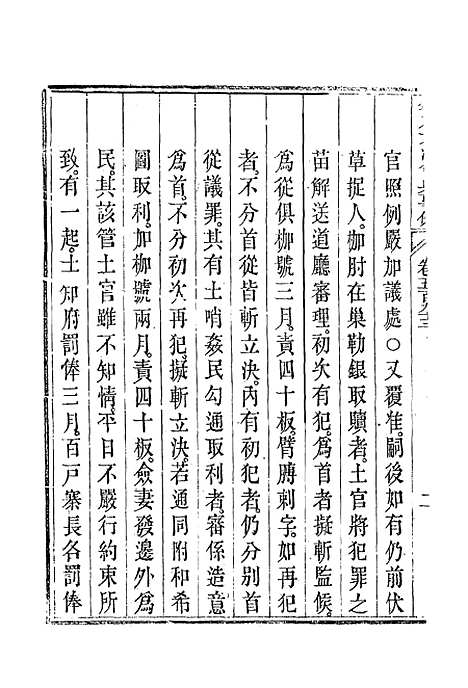 官照例嚴加議處○又覆准。嗣後如有仍前伏
草捉人。枷肘在巢勒銀取贖者。土官將犯罪之
苗解送道廳審理。初次有犯。爲首者擬斬監候。
爲從俱枷號三月。責四十板。臂膊刺字。如再犯
者。不分首從皆斬立決。內有初犯者。仍分別首
從議罪。其有土哨姦民勾通取利者。審係造意
爲首。不分初次再犯。擬斬立決。若通同附和希
圖取利。加枷號兩月。責四十板。僉妻發邊外爲
民。其該管土官雖不知情。平日不嚴行約束所
致。有一起。土知府罰俸三月。百戶寨長各罰俸